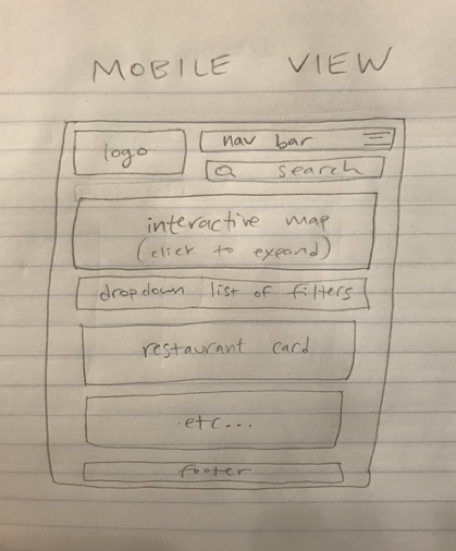 MOBILE VIEW
logo
nav bar
search
interactive map
(click to expand)
dropdown list of filters
restaurant card
etc...
footer